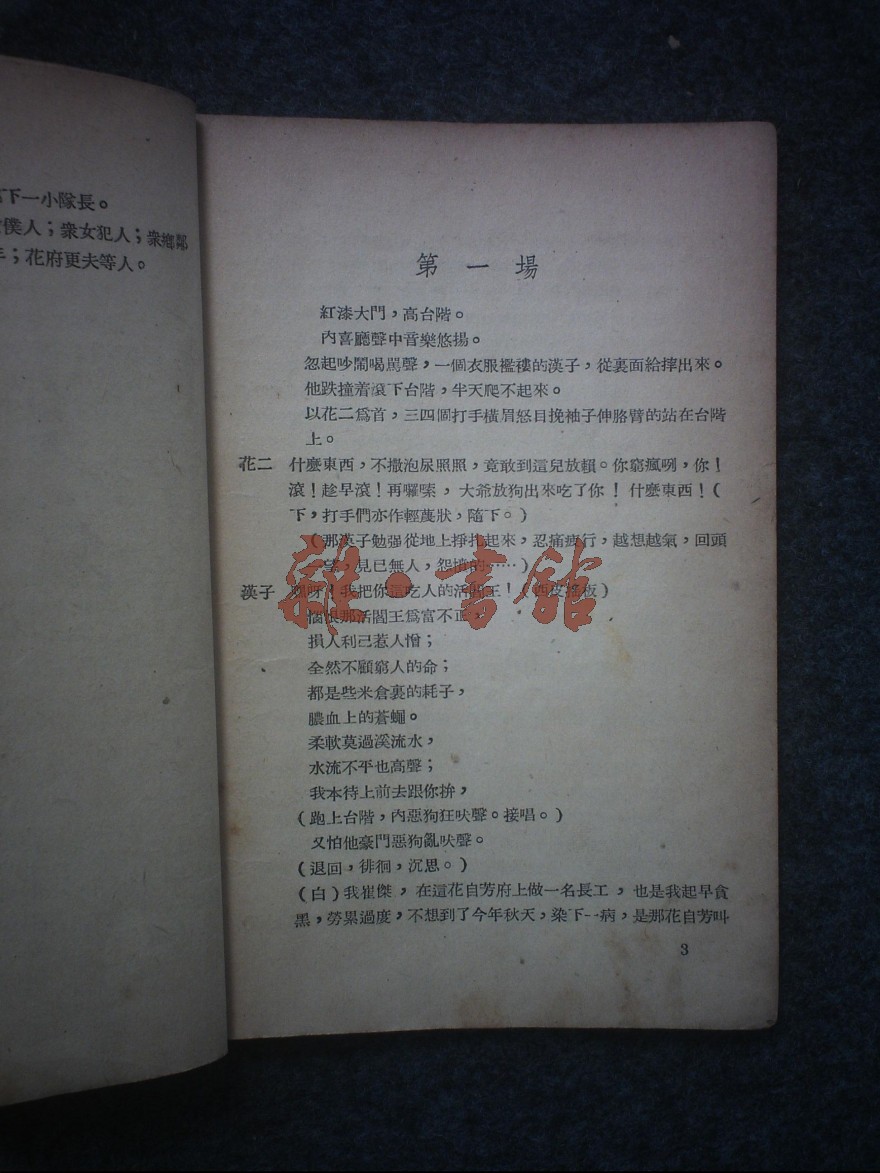 下一小隊長。
僕人；衆女犯人；衆鄉鄰
；花府更夫等人。
第一場
紅漆大門，高台階。
內喜廳聲中音樂悠揚。
忽起吵鬧喝駡聲，一個衣服襤褸的漢子，從裏面給摔出來。
他跌撞着滾下台階，半天爬不起來。
以花二爲首，三四個打手橫眉怒目挽袖子伸胳臂的站在台階
上。
花二 什麼東西，不撒泡尿照照，竟敢到這兒放賴。你窮瘋咧，你！
滾！趁早滾！再囉嗦，大爺放狗出來吃了你！什麼東西！（
下，打手們亦作輕蔑狀，隨下。）
（那漢子勉强從地上掙扎起來，忍痛疲行，越想越氣，回頭
望，見已無人，怨憤的……）
漢子 呀！我把你這吃人的活閻王！（西皮搖板）
惱恨那活閻王爲富不正，
損人利己惹人憎；
全然不顧窮人的命；
都是些米倉裏的耗子，
膿血上的蒼蠅。
柔軟莫過溪流水，
水流不平也高聲；
我本待上前去跟你拚，
（跑上台階，內惡狗狂吠聲。接唱。）
又怕他豪門惡狗亂吠聲。
（退回，徘徊，沉思。）
（白）我崔傑，在這花自芳府上做一名長工，也是我起早貪
黑，勞累過度，不想到了今年秋天，染下一病，是那花自芳叫
3
雜·書館